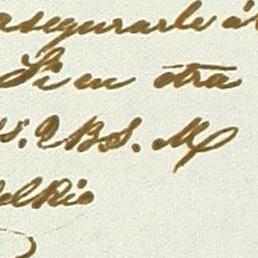 asegurarle á
Si en otra
S. Q B S. M
del Rio